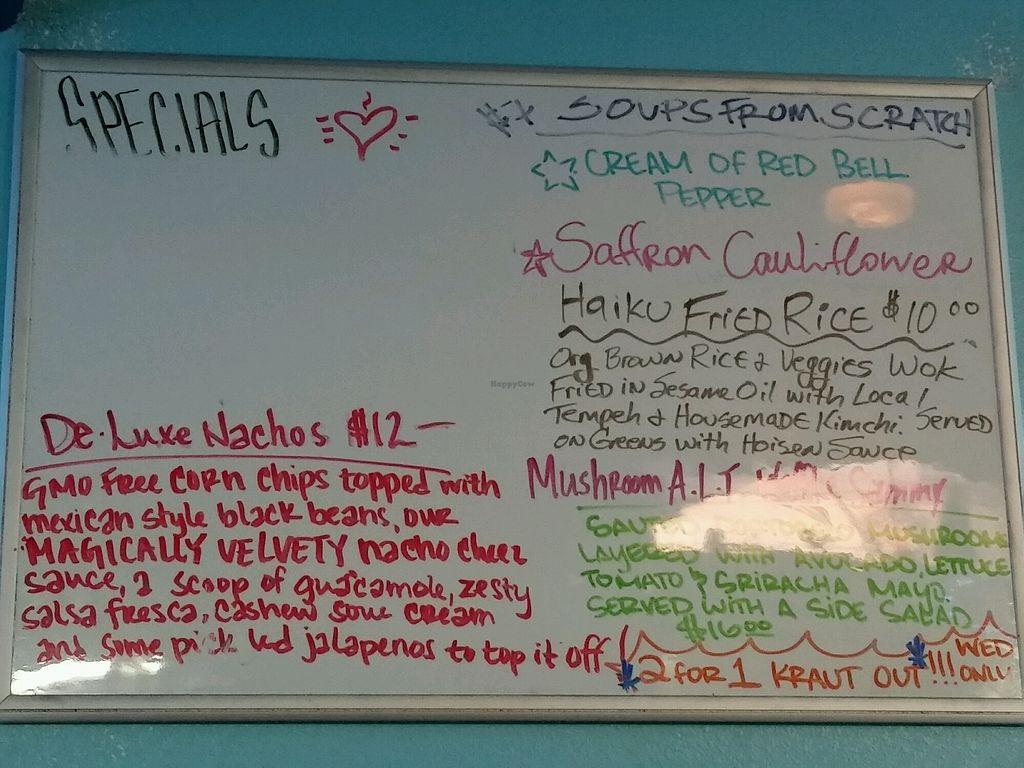 SPECIALS
De-Luxe Nachos $12-
GMO free corn chips topped with
mexican style black beans, our
MAGICALLY VELVETY nacho cheez
sauce, a scoop of guacamole, zesty
salsa fresca, cashew sour cream
and some pickled jalapenos to top it off
SOUPS FROM SCRATCH
CREAM OF RED BELL
PEPPER
Saffron Cauliflower
Haiku Fried Rice $10.00
Org Brown Rice & Veggies Wok
Fried in Sesame Oil with Local
Tempeh & Housemade Kimchi. Served
on Greens with Hoisen Sauce
Mushroom A.L.T
MUSHROOMS
LAYERED WITH AVOCADO, LETTUCE
TOMATO & SRIRACHA MAYO.
SERVED WITH A SIDE SALAD
$16.00
2 FOR 1 KRAUT OUT!!! WED
ONLY
HappyCow